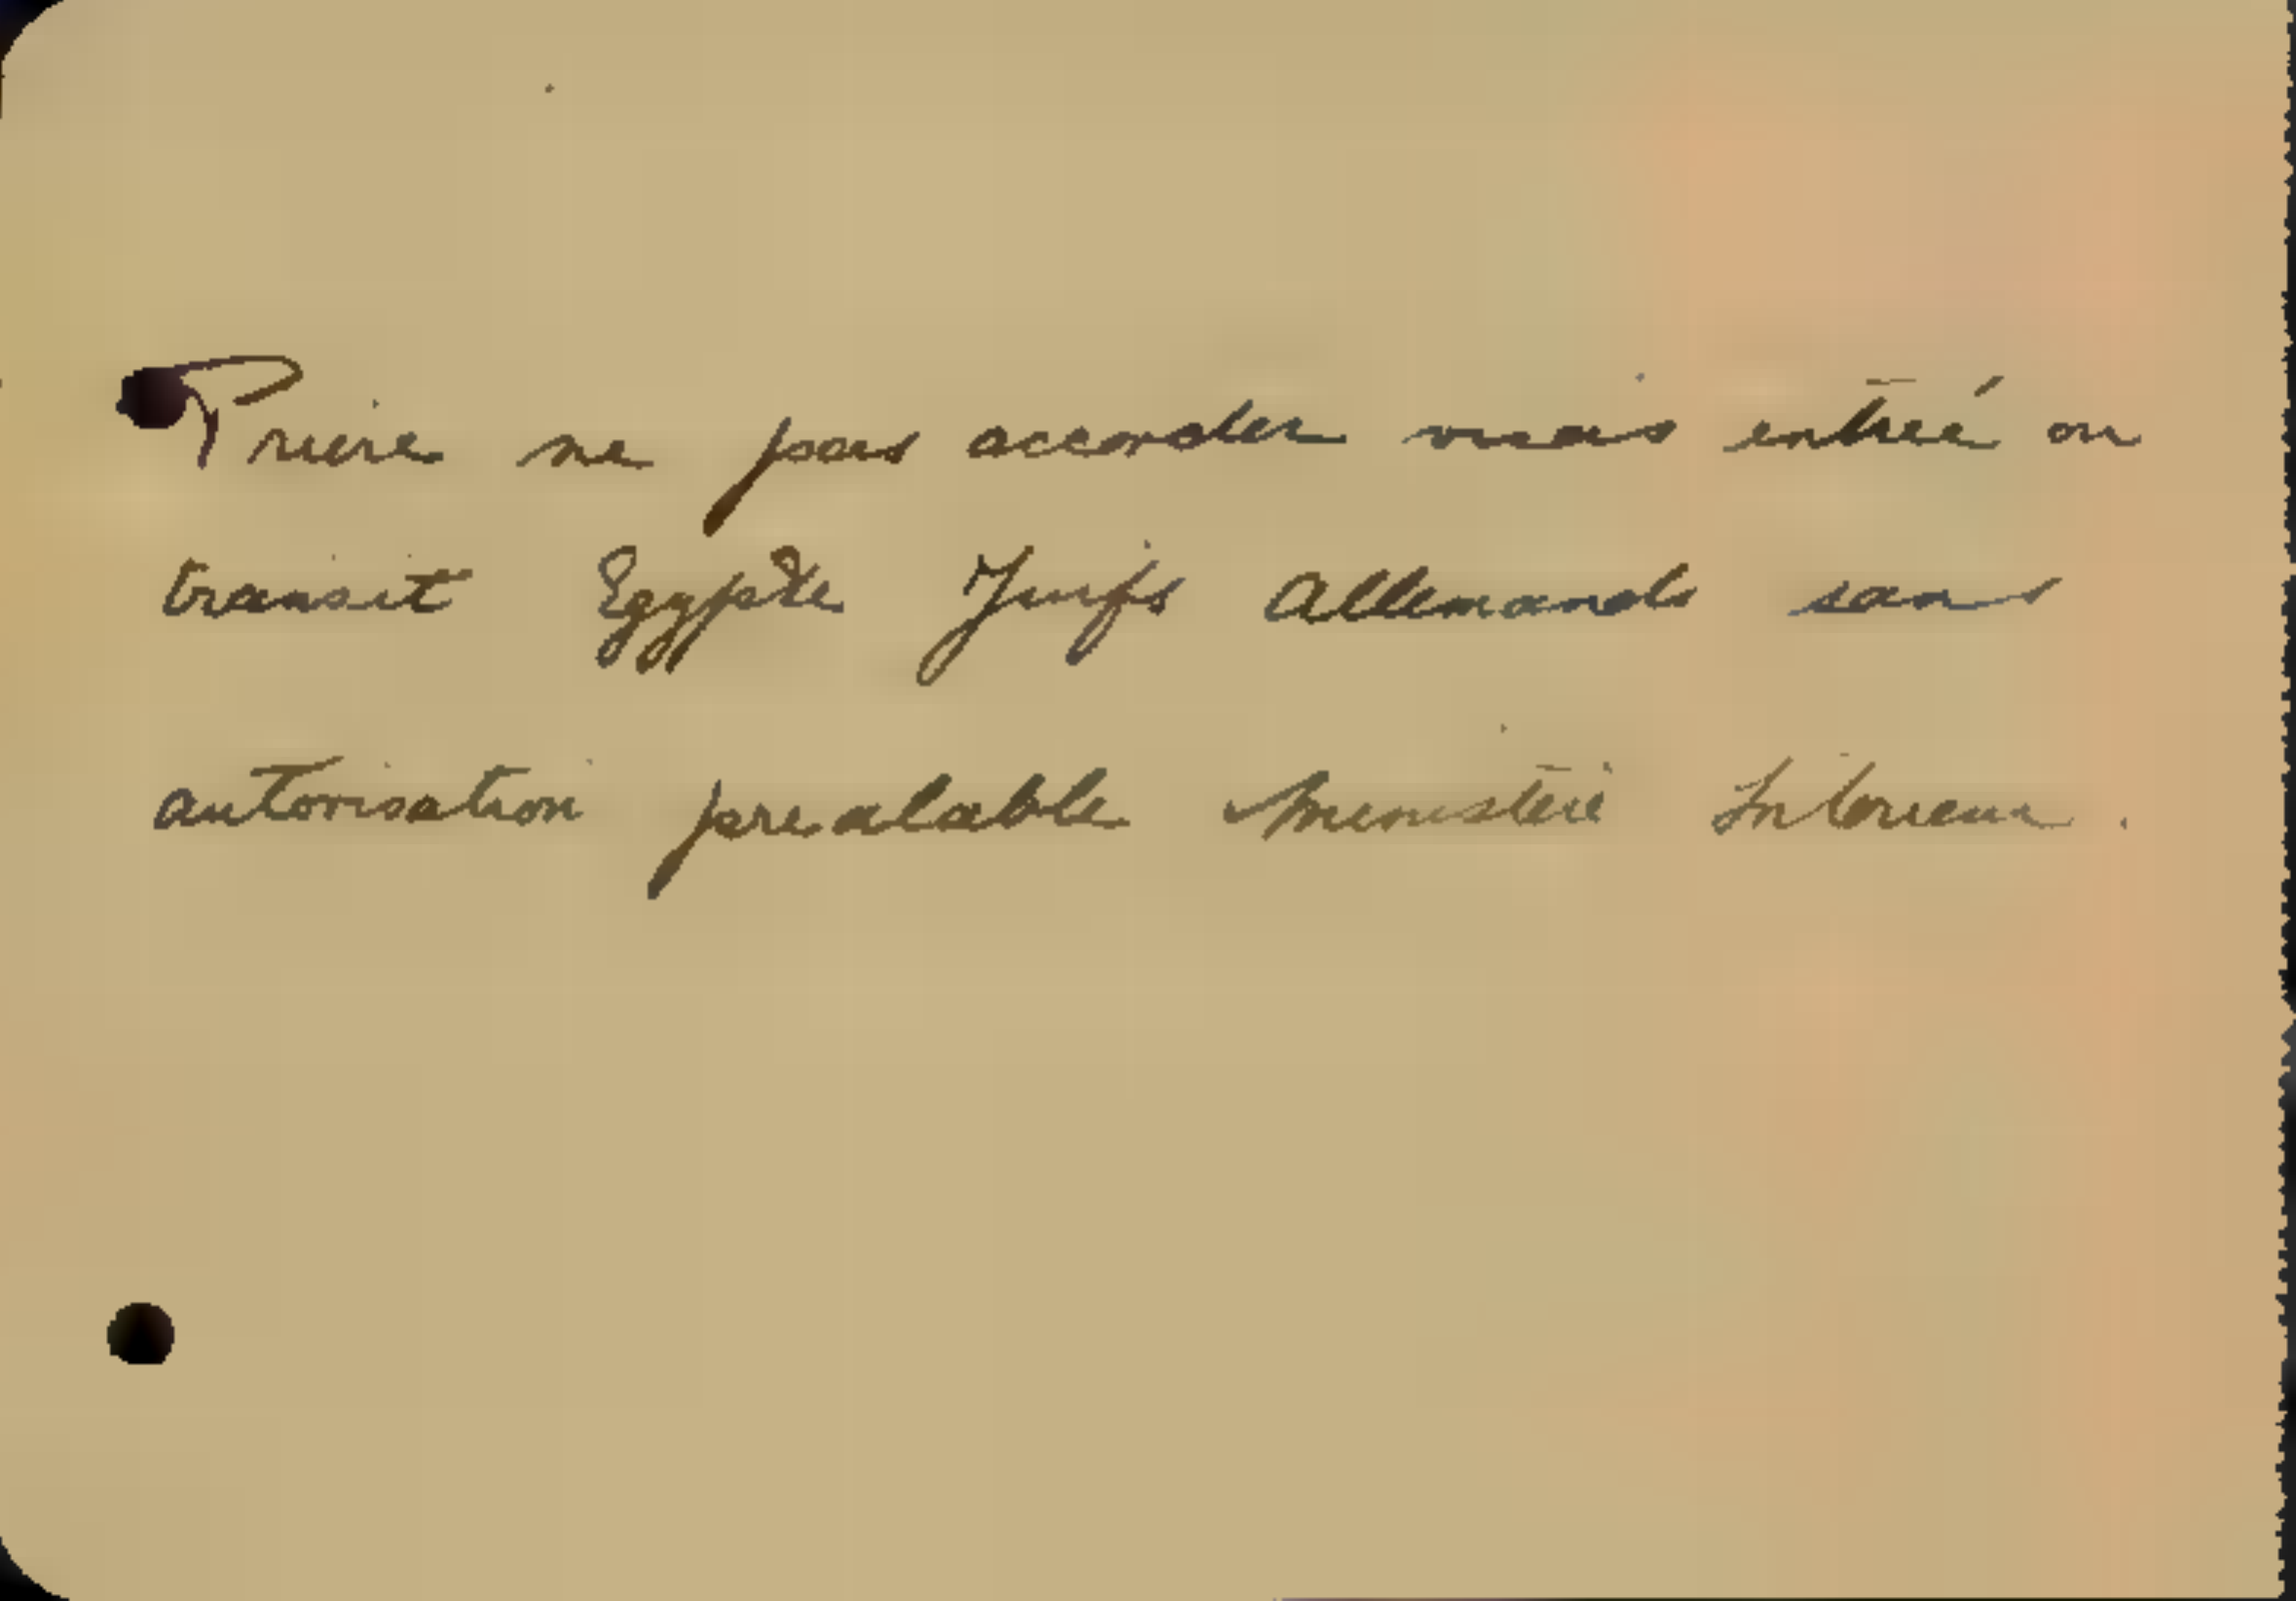 Prière ne pas accorder visas entrée ou
transit Egypte Juifs Allemands sans
autorisation prealable Ministère Interieur.